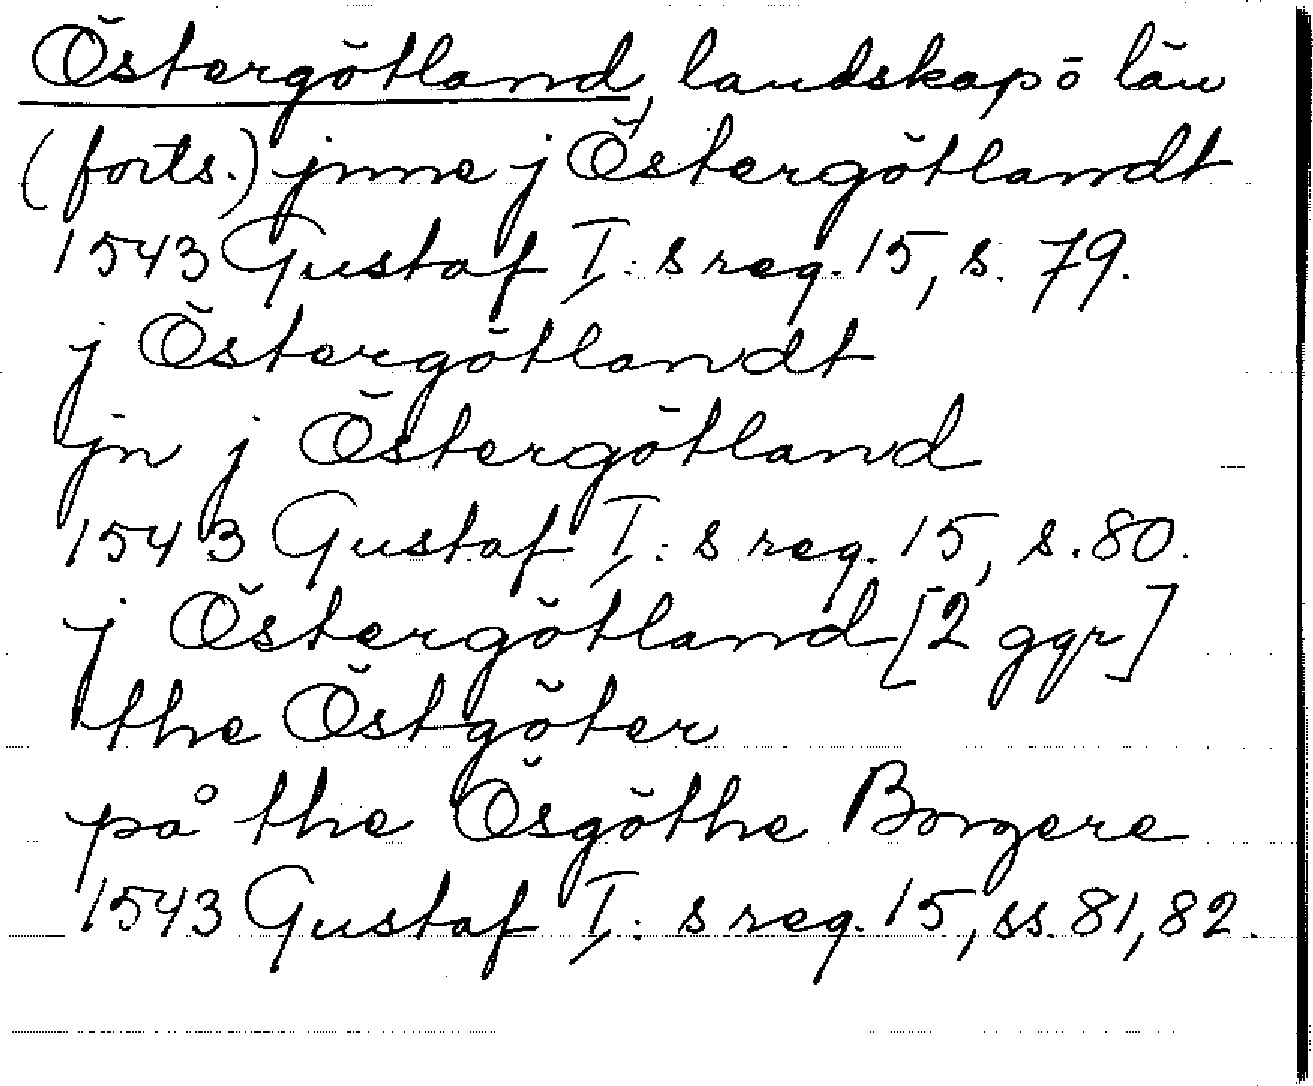 Östergötland, landskap o län
(forts.) jnne j Östergötlandt
1543 Gustaf I:s reg. 15, s. 79.
j Östergötlandt
jn j Östergötland
1543 Gustaf I:s reg. 15, s. 80.
j Östergötland [2 ggr]
the Östgöter
på the Ösgöthe Borgere
1543 Gustaf I:s reg. 15, ss. 81, 82.